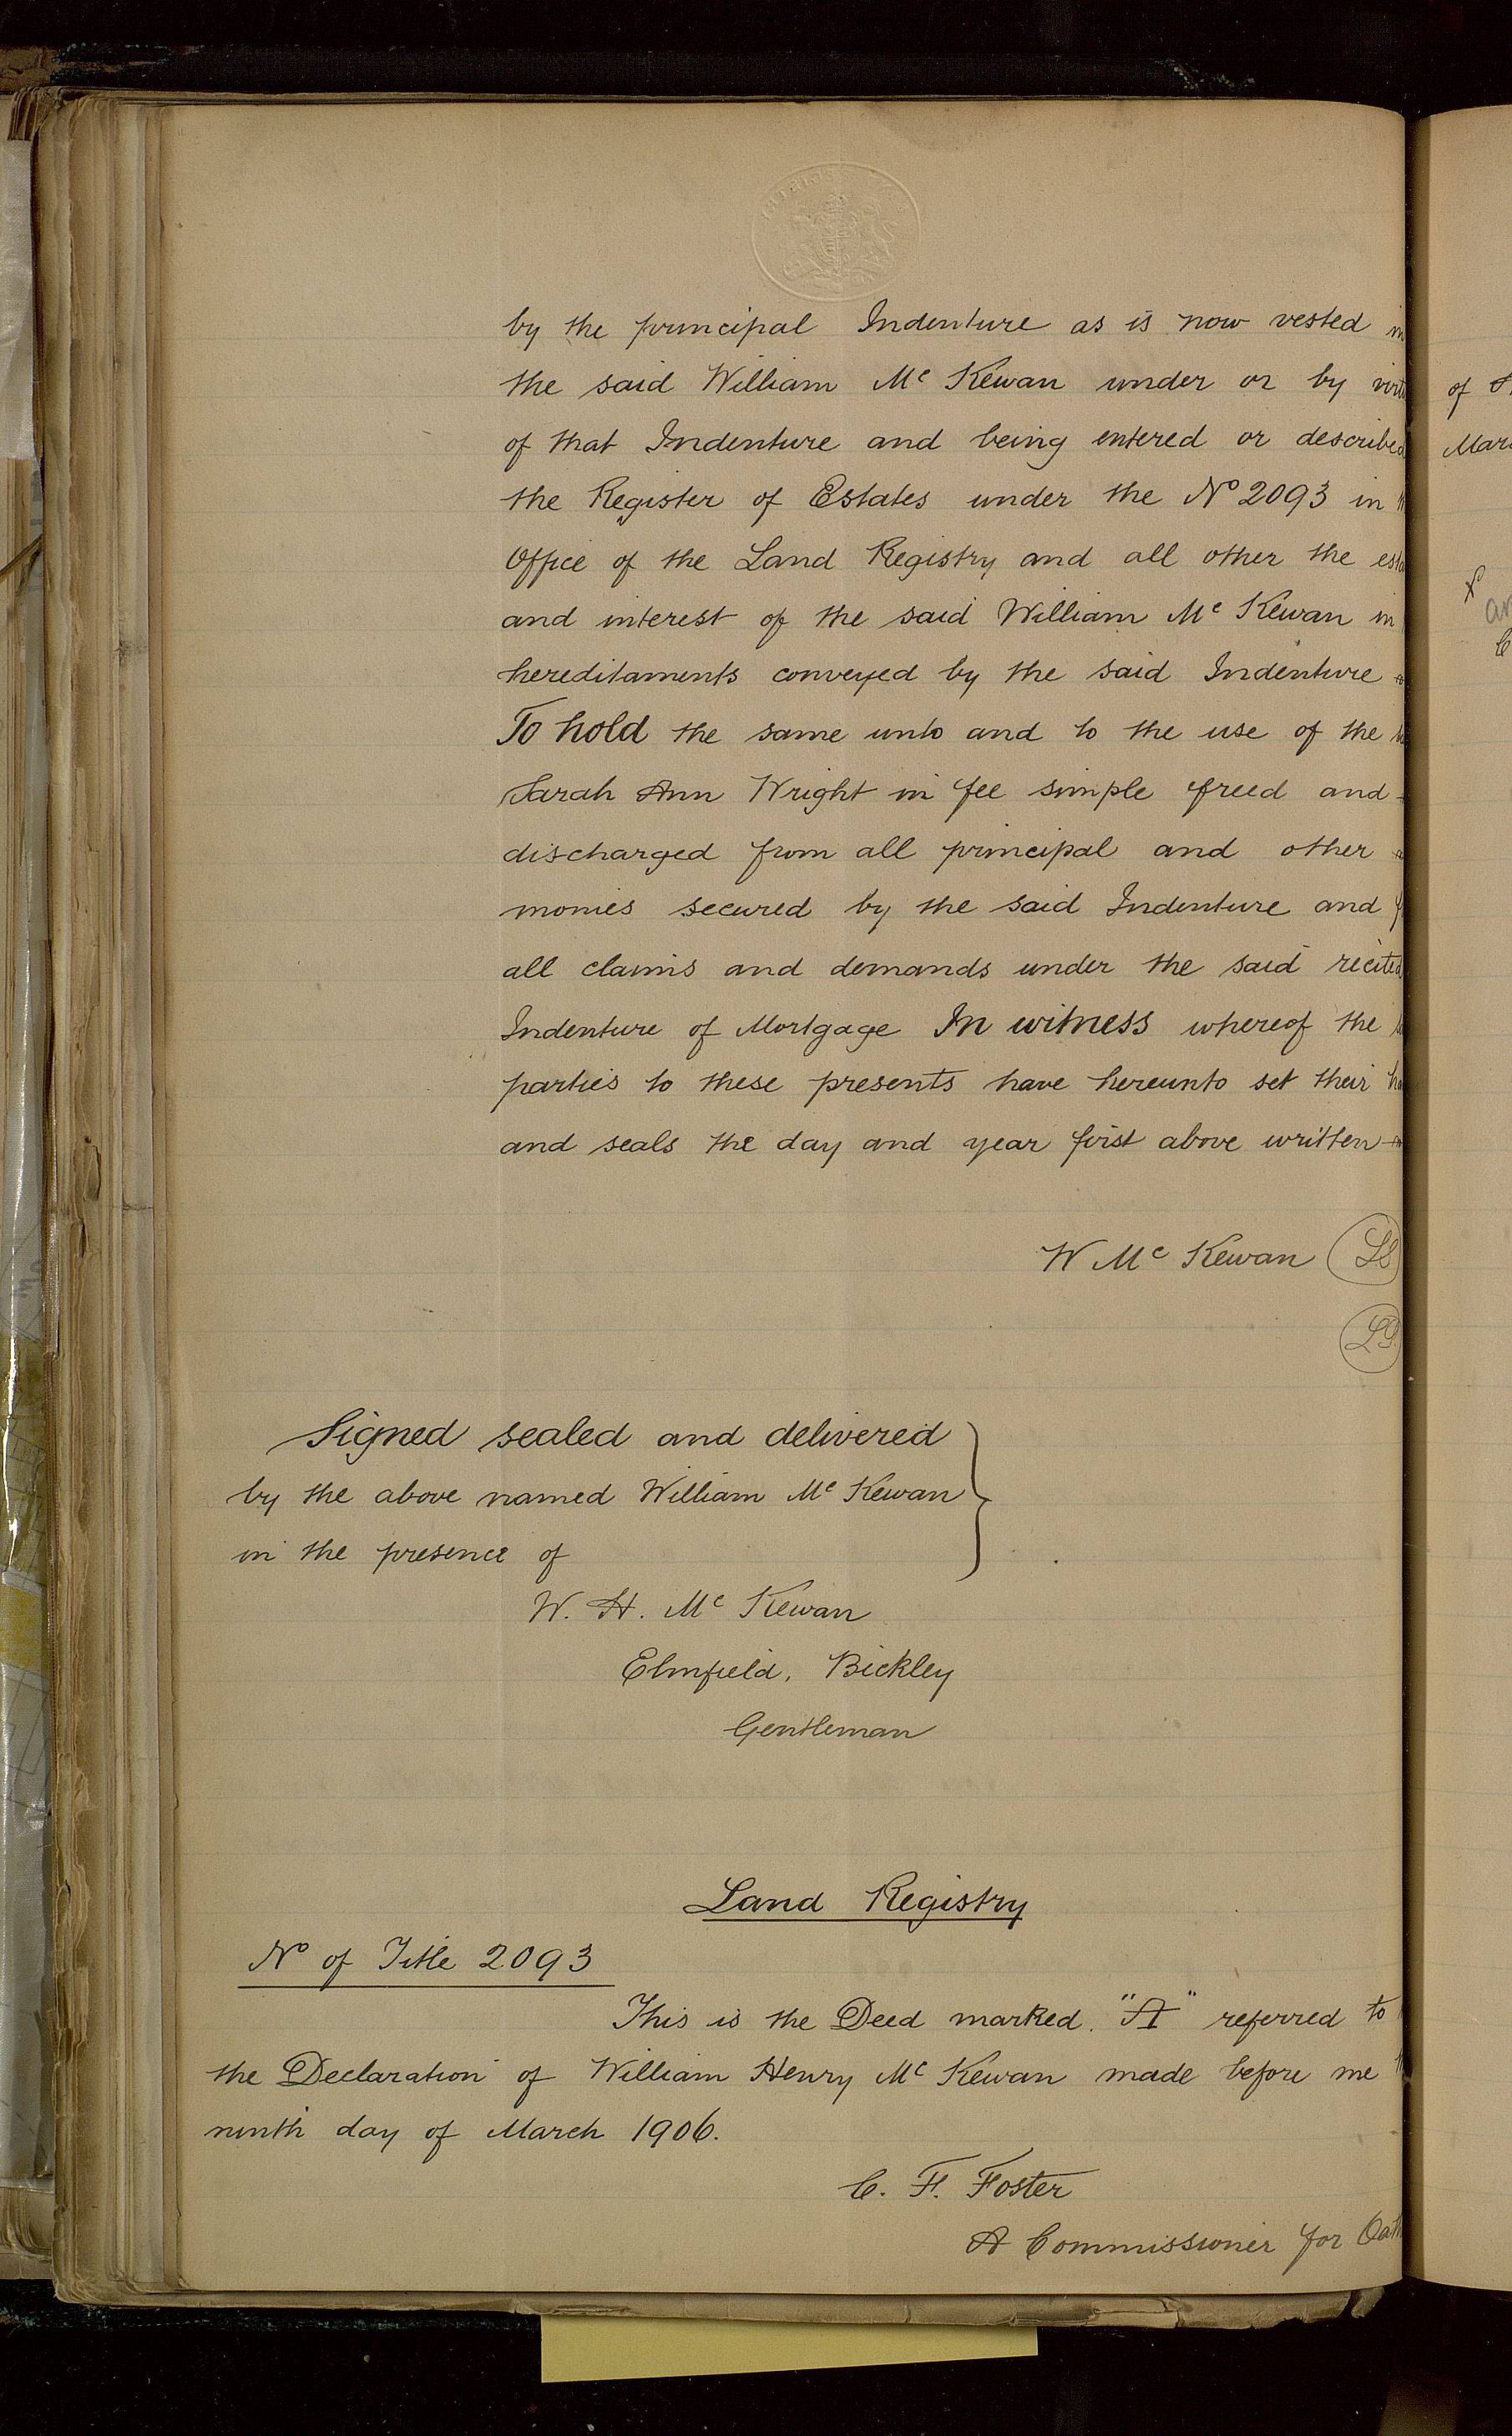 by the principal Indenture as is now vested in
the said William Mc Kewan under or by
of that Indenture and being entered or described
the Register of Estates under the No 2093 in
Office of the Land Registry and all other the
and interest of the said William Mc Kewan in
hereditaments conveyed by the said Indenture
To hold the same unto and to the use of the
Sarah Ann Wright in fee simple freed and
discharged from all principal and other
monies secured by the said Indenture and
all claims and demands under the said recited
Indenture of Mortgage In witness whereof the
parties to these presents have hereunto set their
and seals the day and year first above written
W Mc Kewan LS
LS
Signed sealed and delivered
by the above named William Mc Kewan
in the presence of
W. H. Mc Kewan
Elmfield, Bickley
Gentleman
Land Registry
No of Title 2093
This is the Deed marked "A" referred to
the Declaration of William Henry Mc Kewan made before me
ninth day of March 1906.
C. F. Foster
A Commissioner for
of